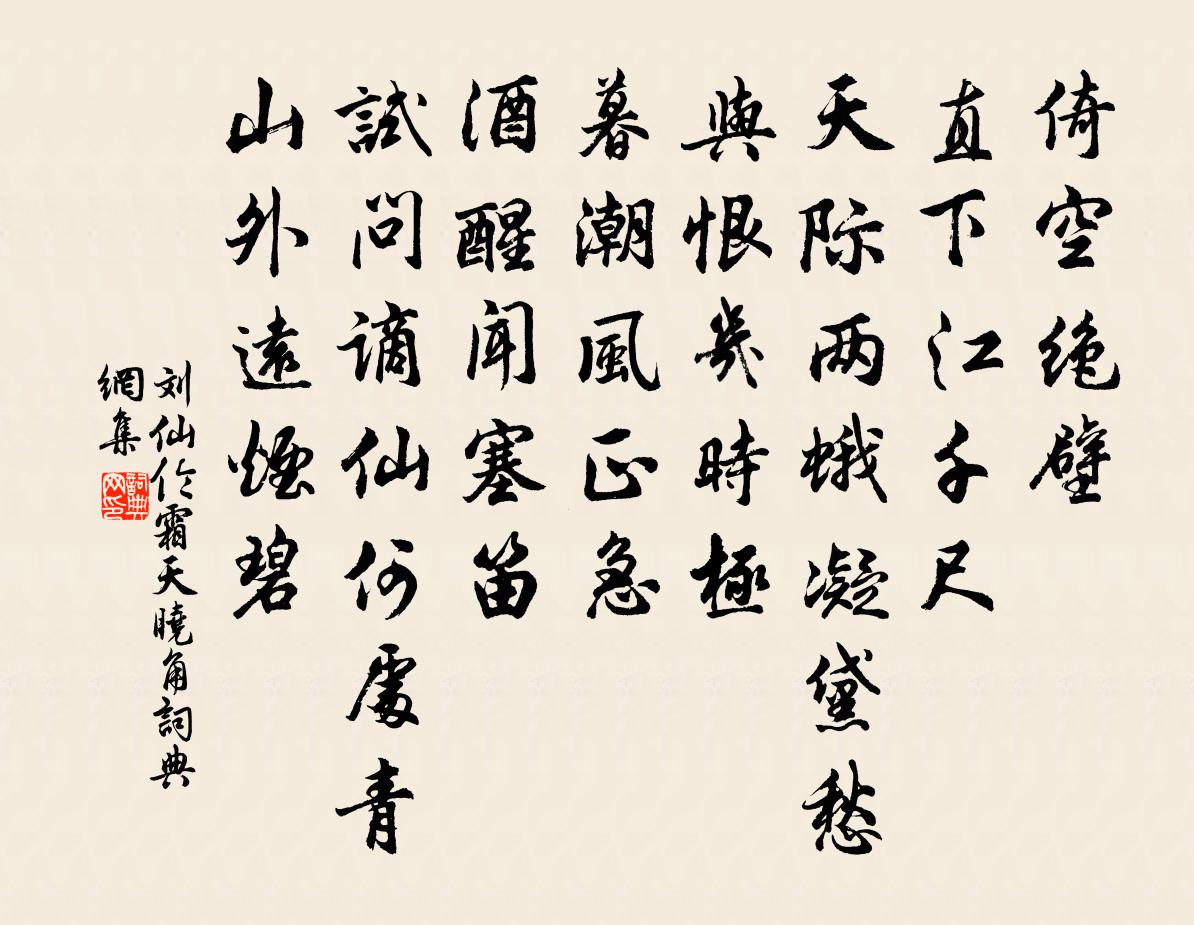 倚空绝壁
直下江千尺
天际两蛾凝黛愁
與恨幾時極
暮潮風正急
酒醒闻塞笛
試问谪仙何處青
山外遠煙碧
刘仙伦霜天曉角詞典
網集
詞典网印